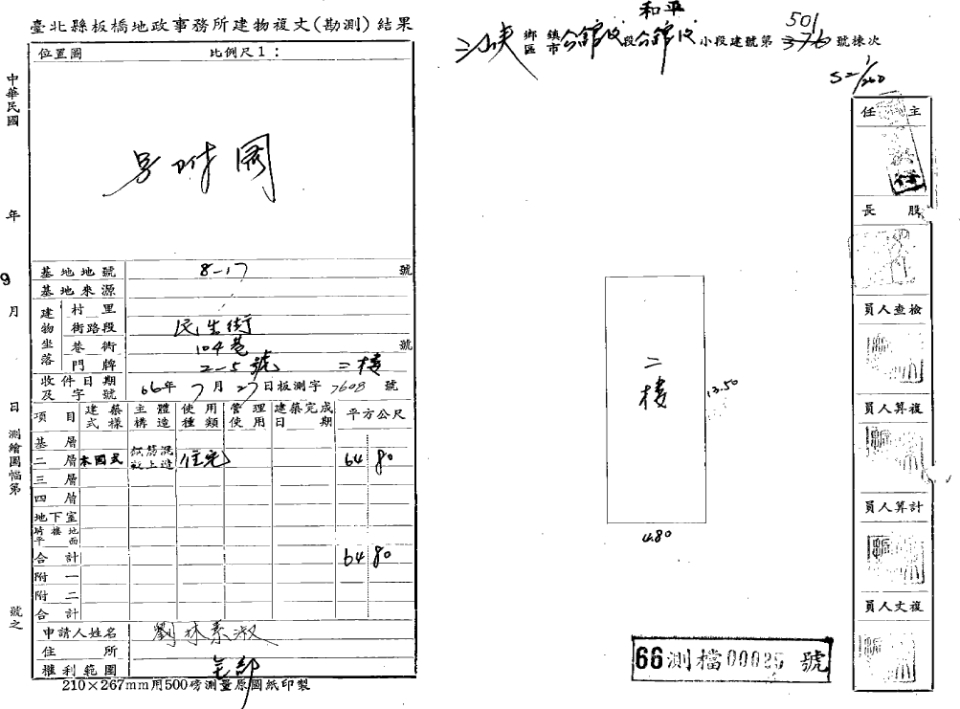 臺北縣板橋地政事務所建物複丈(勘測)結果
位置圖 比例尺1:
另附圖
中華民國 年 9 月 日測繪圖幅第 號之
基地地號 8-17 號
基地來源
建物坐落 村里
街路段 民生街
巷衖 104巷 號
門牌 2-5號 二樓
收件日期及字號 66年7月27日板測字7608號
項目 建築式樣 主體構造 使用種類 管理使用 建築完成日期 平方公尺
基層
二層 本國式 住宅 64 80
三層
四層
地下室
騎樓地平面
合計 64 80
附一
附二
合計
申請人姓名 劉林素淑
住所
權利範圍 全部
210×267mm用500磅測量原圖紙印製
和平
501
三峽 鄉鎮區市 公館后段公館后小段建號第376號棟次
S=1/200
二樓
13.50
4.80
66測檔00025號
主任
股長
檢查人員
複算人員
計算人員
複丈人員